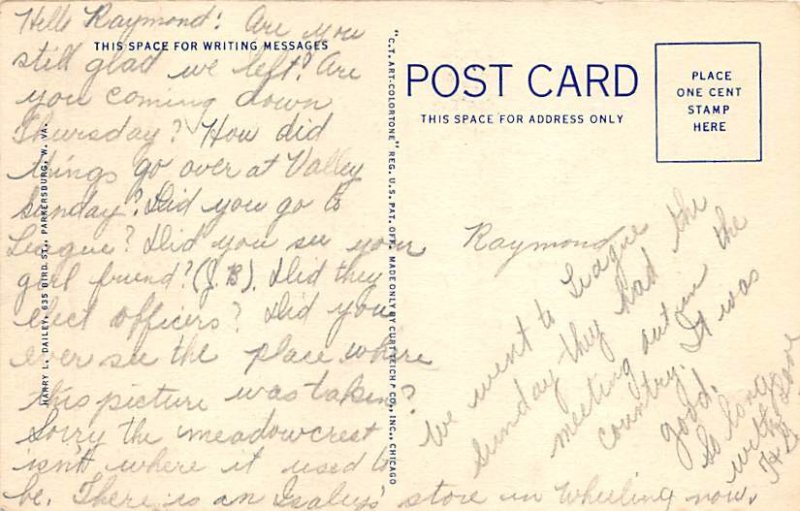 Hello Raymond: Are you
THIS SPACE FOR WRITING MESSAGES
still glad we left? Are
you coming down
Thursday? How did
things go over at Valley
Sunday? Did you go to
League? Did you see your
girl friend? (J.B). Did they
elect officers? Did you
ever see the place where
this picture was taken?
Sorry the meadowcrest
isn't where it used to
be. There is an Isaleys' store in Wheeling now.
HARRY L. DAILEY, 635 BIRD ST., PARKERSBURG, W. VA.
"C.T. ART-COLORTONE" REG. U.S. PAT. OFF. MADE ONLY BY CURT TEICH & CO., INC., CHICAGO
POST CARD
THIS SPACE FOR ADDRESS ONLY
PLACE
ONE CENT
STAMP
HERE
Raymond
We went to League the
Sunday they had the
meeting out in the
country. It was
good.
So long
with Love